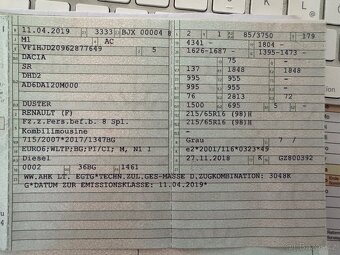 11.04.2019 3333 BJX 00004 8
M1 AC
VF1HJD20962877649 5
DACIA
SR
DHD2
AD6DA120M000
DUSTER
RENAULT (F)
Fz.z.Pers.bef.b. 8 Spl.
Kombilimousine
715/2007*2017/1347BG
EURO6;WLTP;BG;PI/CI; M, N1 I
Diesel
0002 36BG 1461
2 1 85/3750 179
4341 1804 -
1626-1687 - 1395-1473-
- 75 -
137 1848 1848
995 955 -
995 955 -
76 2813 72
1500 695 5 -
215/65R16 (98)H
215/65R16 (98)H
-
Grau 7 /
e2*2001/116*0323*49
27.11.2018 K GZ800392
WW.AHK LT. EGTG*TECHN.ZUL.GES-MASSE D.ZUGKOMBINATION: 3048K
G*DATUM ZUR EMISSIONSKLASSE: 11.04.2019*